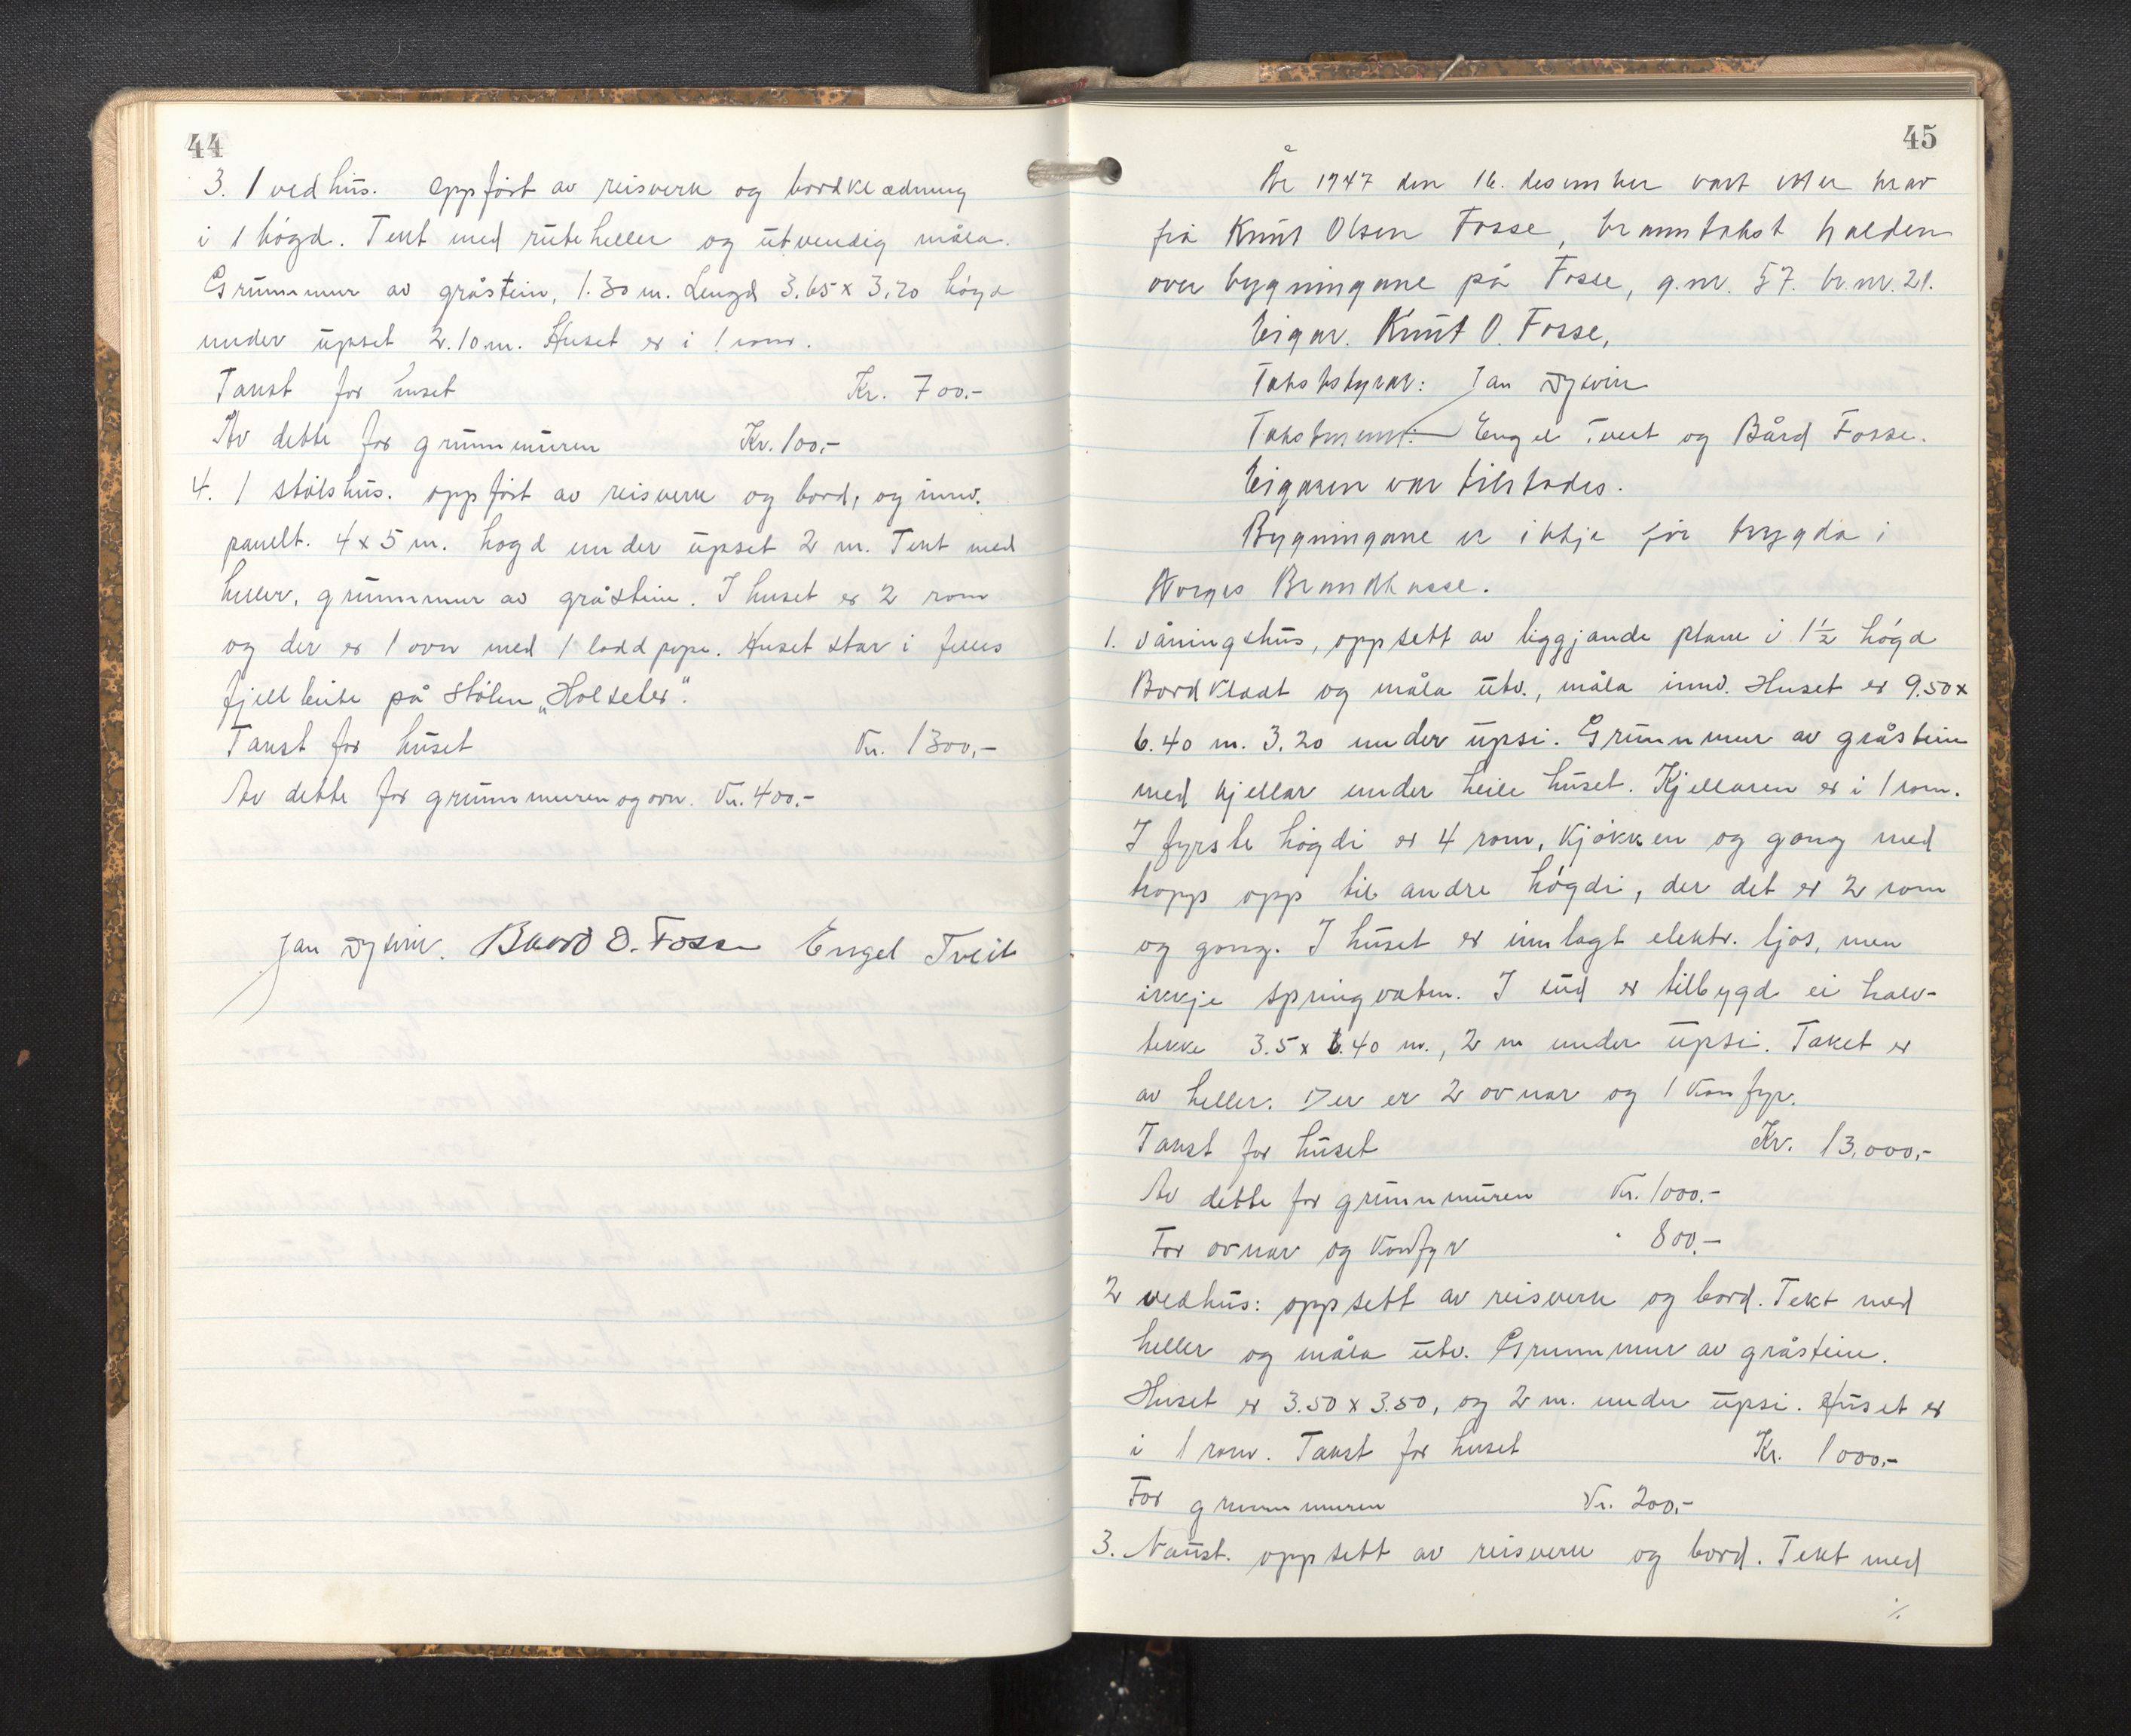 44
3. 1 vedhus. Oppført av reisverk og bordklædning
i 1 høgd. Tekt med ruteheller og utvendig måla.
Grunnmur av gråstein, 1.30 m. Lengd 3.65 x 3.20 høgd
under upset 2.10 m. Huset er i 1 rom.
Takst for huset Kr. 700.-
Av dette for grunnmuren Kr. 100,-
4. 1 stølshus. oppført av reisverk og bord, og innv.
panelt. 4 x 5 m. høgd under upset 2 m. Tekt med
heller, grunnmur av gråstein. I huset er 2 rom
og der er 1 ovn med 1 lodd pipe. Huset står i felles
fjellbeite på stølen „Holseter".
Takst for huset Kr. 1300,-
Av dette for grunnmuren og ovn. Kr. 400.-
Jan Baard O. Fosse Engel Tveit
45
År 1947 den 16. desember vart etter krav
frå Knut Olsen Fosse, branntakst halden
over bygningane på Fosse, g.nr. 57. br.nr. 21.
Eigar. Knut O. Fosse,
Takststyrar: Jan
Takstmenn: Engel Tveit og Bård Fosse.
Eigaren var tilstades.
Bygningane er ikkje før trygda i
Norges Brandkasse.
1. Våningshus, oppsett av liggjande plank i 1½ høgd
Bordkledt og måla utv., måla innv. Huset er 9.50 x
6.40 m. 3.20 under upsi. Grunnmur av gråstein
med kjellar under heile huset. Kjellaren er i 1 rom.
I fyrste høgdi er 4 rom, kjøkken og gong med
tropp opp til andre høgdi, der det er 2 rom
og gong. I huset er innlagt elektr. ljos, men
ikkje springvatn. I sud er tilbygd ei halv-
tekke 3.5 x 6.40 m., 2 m under upsi. Taket er
av heller. Der er 2 ovnar og 1 komfyr.
Takst for huset Kr. 13,000,-
Av dette for grunnmuren Kr. 1000.-
For ovnar og komfyr " 800.-
2 vedhus: oppsett av reisverk og bord. Tekt med
heller og måla utv. Grunnmur av gråstein.
Huset er 3.50 x 3.50, og 2 m. under upsi. Huset er
i 1 rom. Takst for huset Kr. 1000,-
For grunnmuren Kr. 200,-
3. Naust. oppsett av reisverk og bord. Tekt med
./.